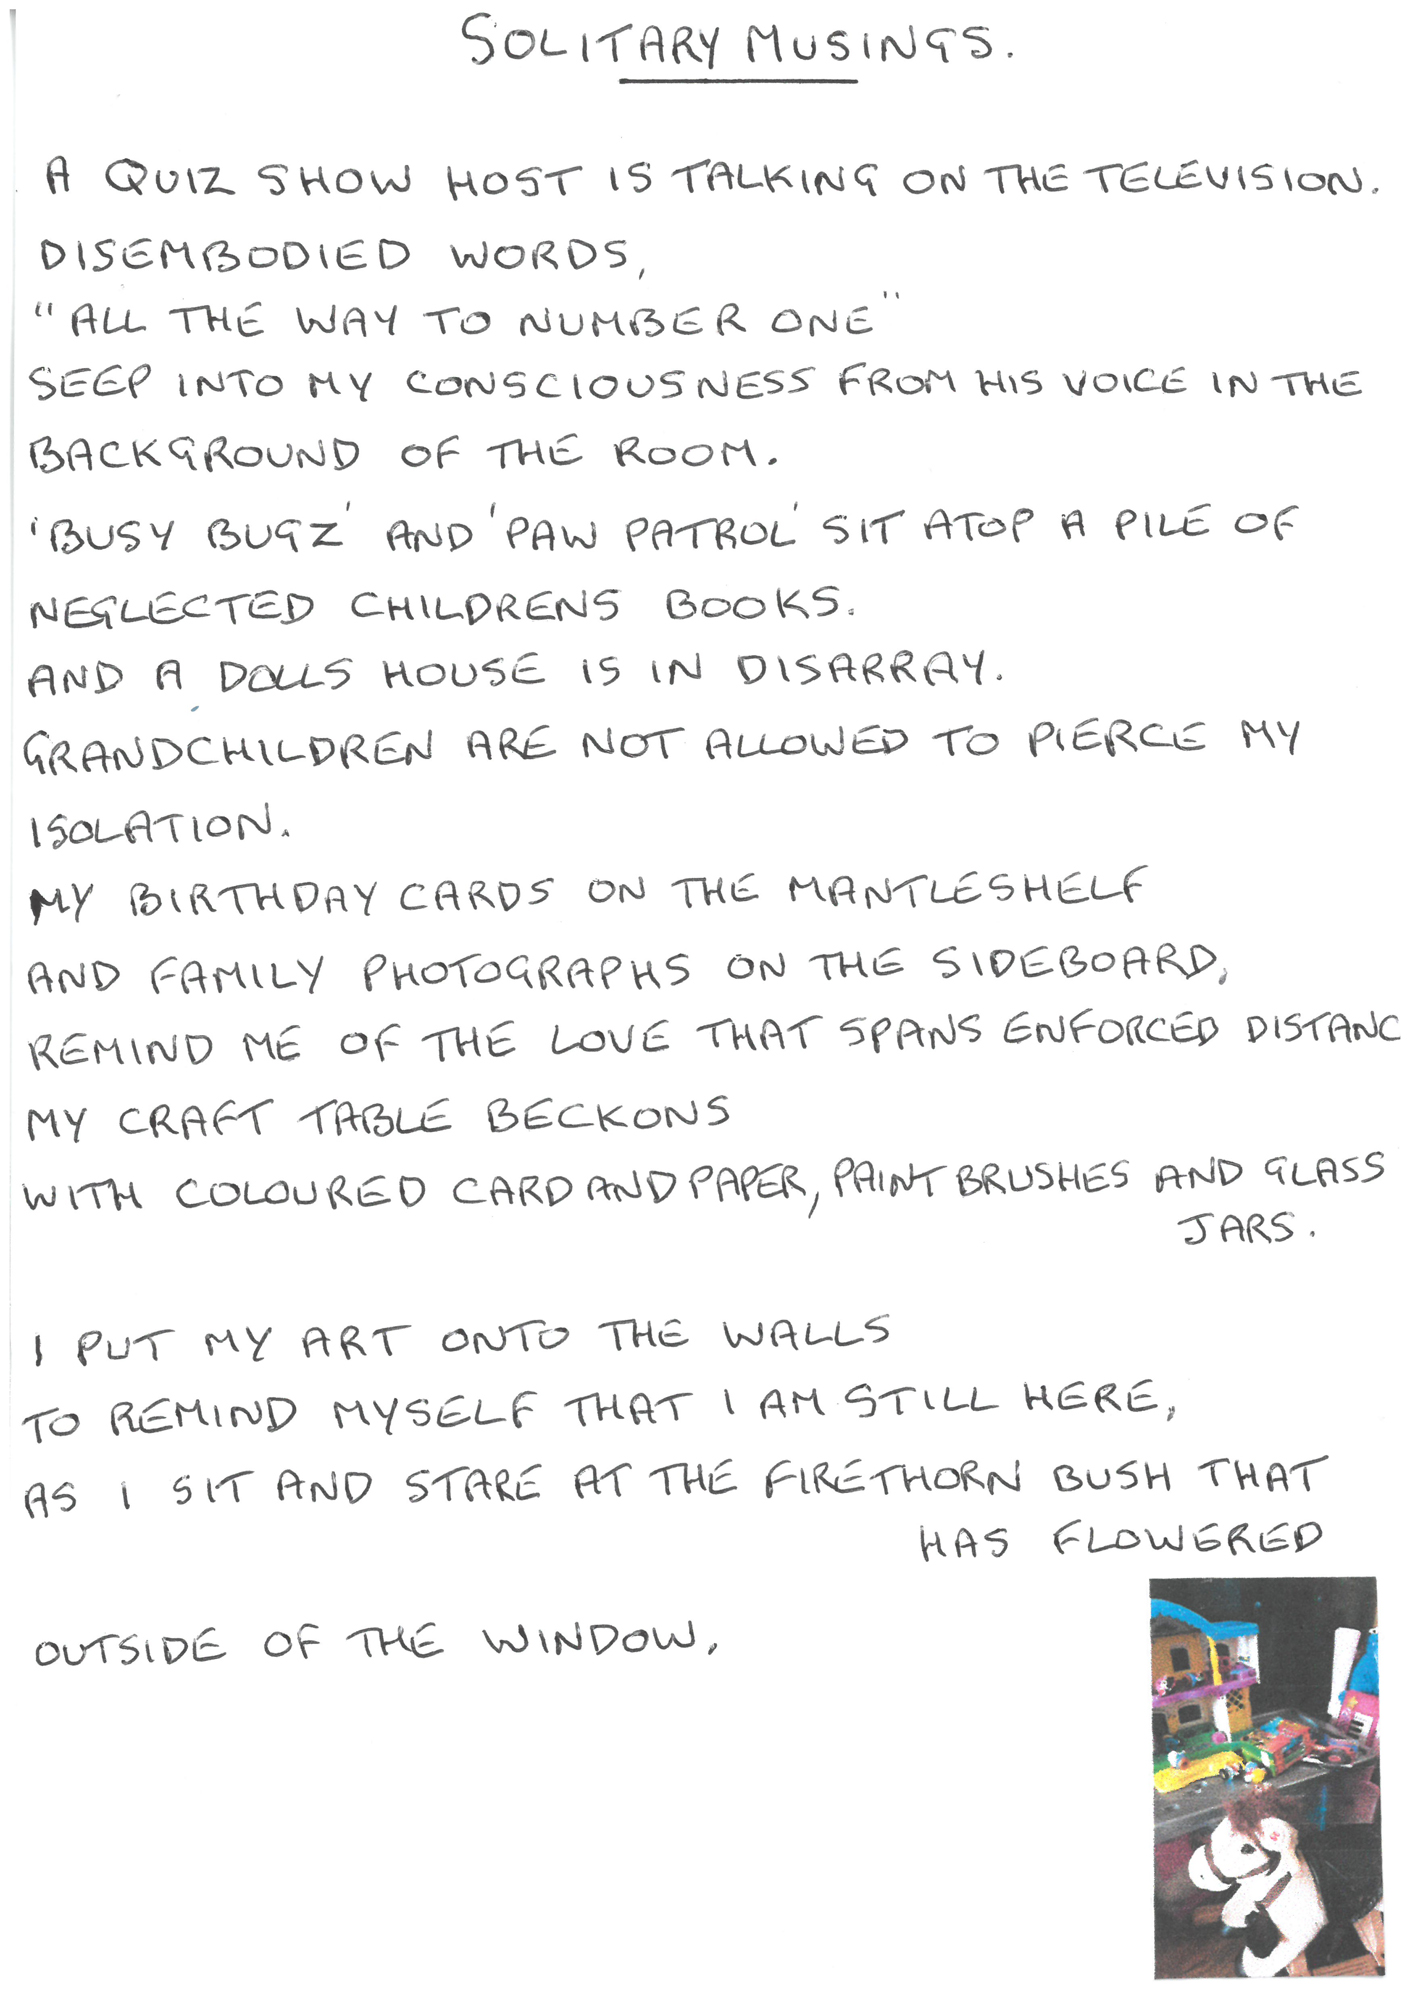 SOLITARY MUSINGS.
A QUIZ SHOW HOST IS TALKING ON THE TELEVISION.
DISEMBODIED WORDS,
"ALL THE WAY TO NUMBER ONE"
SEEP INTO MY CONSCIOUSNESS FROM HIS VOICE IN THE
BACKGROUND OF THE ROOM.
'BUSY BUGZ' AND 'PAW PATROL' SIT ATOP A PILE OF
NEGLECTED CHILDRENS BOOKS.
AND A DOLLS HOUSE IS IN DISARRAY.
GRANDCHILDREN ARE NOT ALLOWED TO PIERCE MY
ISOLATION.
MY BIRTHDAY CARDS ON THE MANTLESHELF
AND FAMILY PHOTOGRAPHS ON THE SIDEBOARD,
REMIND ME OF THE LOVE THAT SPANS ENFORCED DISTANC
MY CRAFT TABLE BECKONS
WITH COLOURED CARD AND PAPER, PAINT BRUSHES AND GLASS
JARS.
I PUT MY ART ONTO THE WALLS
TO REMIND MYSELF THAT I AM STILL HERE,
AS I SIT AND STARE AT THE FIRETHORN BUSH THAT
HAS FLOWERED
OUTSIDE OF THE WINDOW.